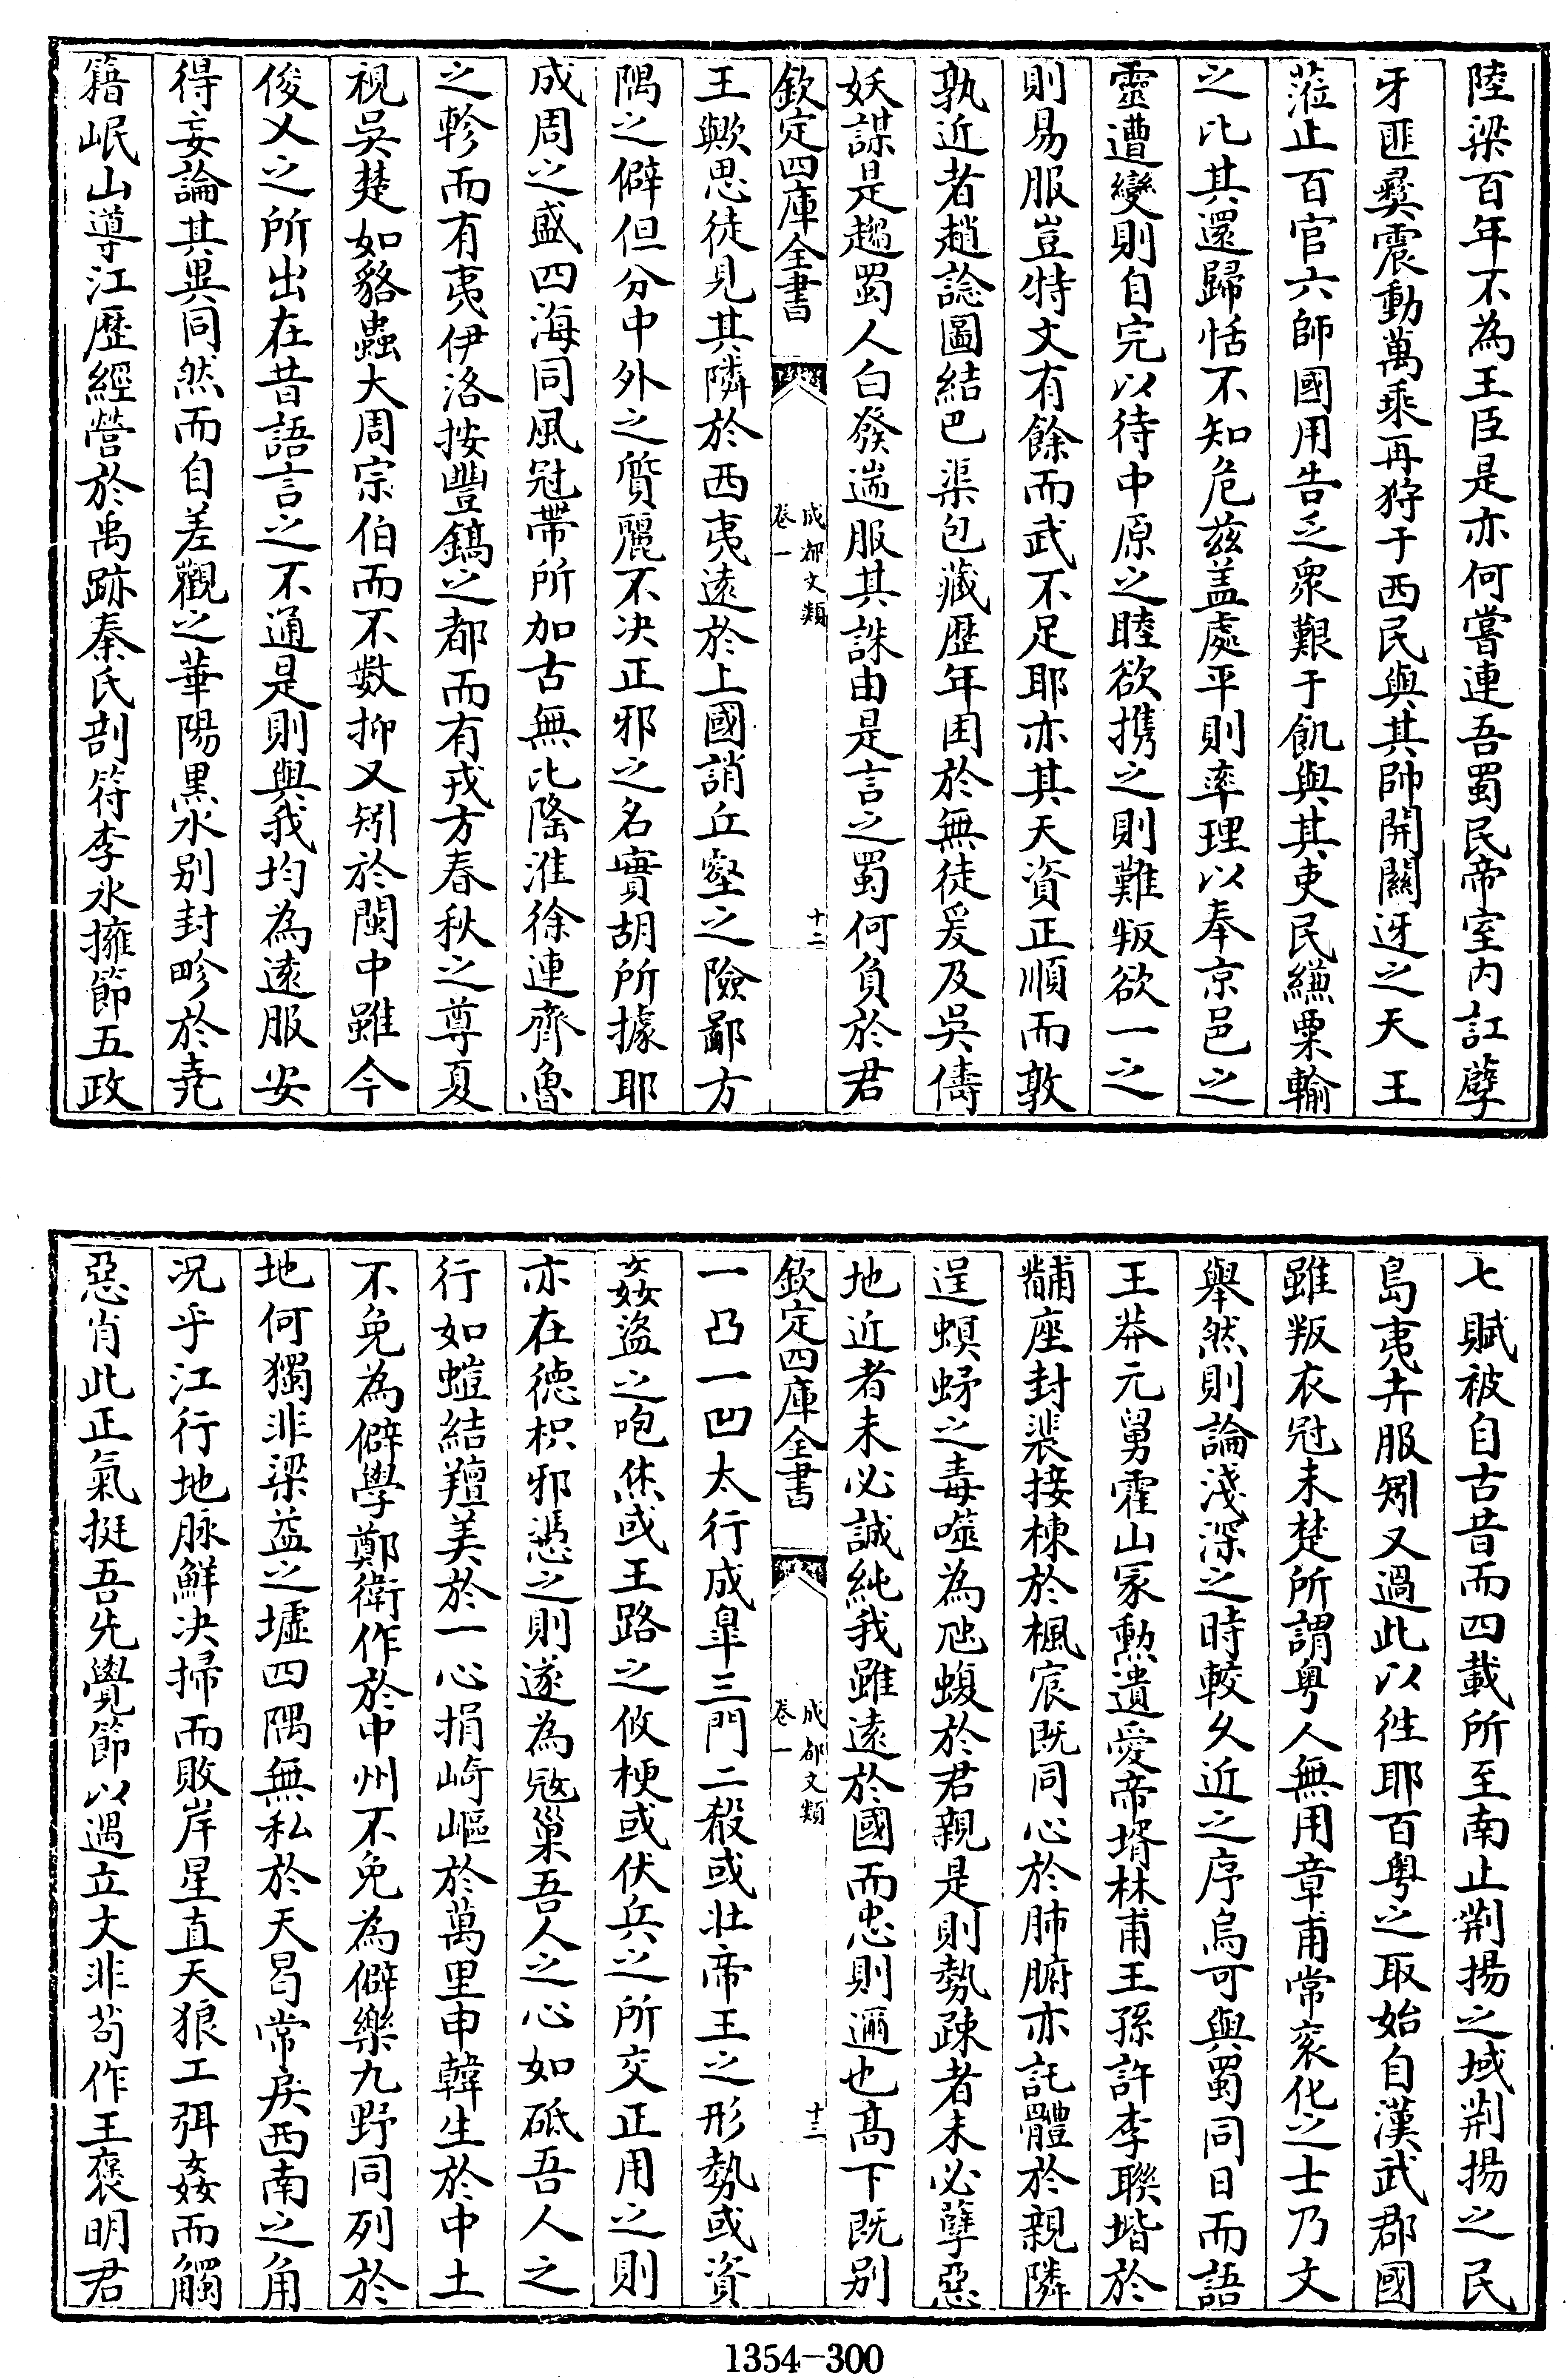 陸梁百年不為王臣是亦何嘗連吾蜀民帝室内訌孽
牙匪彛震動萬乘再狩于西民與其帥開關迓之天王
蒞止百官六師國用告乏衆艱于飢與其吏民縑粟輸
之比其還歸恬不知危兹盖處平則率理以奉京邑之
靈遭變則自完以待中原之睦欲携之則難叛欲一之
則易服豈特文有餘而武不足耶亦其天資正順而敦
孰近者趙諗圖結巴渠包藏歴年困於無徒爰及吳儔
妖謀是趨蜀人白發遄服其誅由是言之蜀何負於君
欽定四庫全書
成都文類
卷一
十二
王歟思徒見其隣於西夷遠於上國誚丘壑之險鄙方
隅之僻但分中外之質麗不决正邪之名實胡所據耶
成周之盛四海同風冠帶所加古無比隆淮徐連齊魯
之軫而有夷伊洛按豐鎬之都而有戎方春秋之尊夏
視吳楚如貉蟲大周宗伯而不數抑又矧於閩中雖今
俊乂之所出在昔語言之不通是則與我均為遠服安
得妄論其異同然而自差觀之華陽黒水别封畛於堯
籍岷山導江歴經營於禹跡秦氏剖符李氷擁節五政
七賦被自古昔而四載所至南止荆揚之域荆揚之民
島夷卉服矧又過此以徃耶百粤之取始自漢武郡國
雖叛衣冠未楚所謂粤人無用章甫常衮化之士乃文
舉然則論淺深之時較久近之序烏可與蜀同日而語
王莽元舅霍山冢勲遺愛帝壻林甫王孫許李聯堦於
黼座封裴接棟於楓宸既同心於肺腑亦託體於親隣
逞螟蛑之毒噬為虺蝮於君親是則勢疎者未必孽惡
地近者未必誠純我雖遠於國而忠則邇也髙下既别
欽定四庫全書
成都文類
卷一
十三
一凸一凹太行成臯三門二殽或壯帝王之形勢或資
姦盜之咆烋或王路之攸梗或伏兵之所交正用之則
亦在德枳邪憑之則遂為冦巢吾人之心如砥吾人之
行如螘結羶美於一心捐崎嶇於萬里申韓生於中土
不免為僻學鄭衛作於中州不免為僻樂九野同列於
地何獨非梁益之墟四隅無私於天曷常戾西南之角
况乎江行地脉鮮决掃而敗岸星直天狼工弭姦而觸
惡肖此正氣挺吾先覺節以遇立文非茍作王褒明君
1354-300